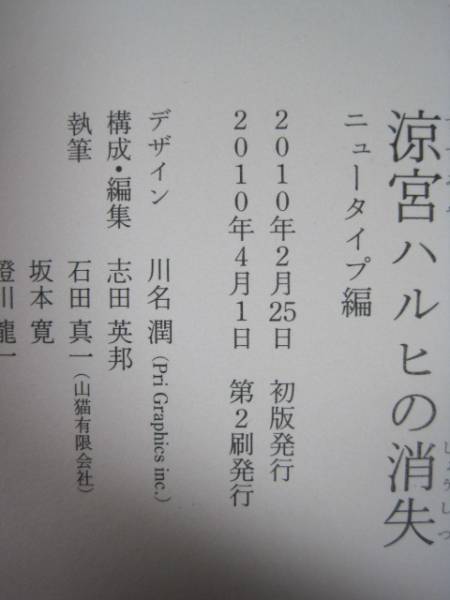 涼宮ハルヒの消失
ニュータイプ編
2010年2月25日 初版発行
2010年4月1日 第2刷発行
デザイン 川名 潤(Pri Graphics inc.)
構成・編集 志田 英邦
執筆 石田 真一(山猫有限会社)
坂本 寛
澄川 龍一